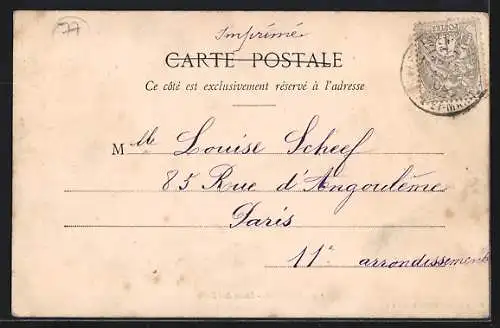 77
Imprimé
CARTE POSTALE
Ce côté est exclusivement réservé à l'adresse
M lle Louise Scheef
85 Rue d'Angoulême
Paris
11e arrondissement